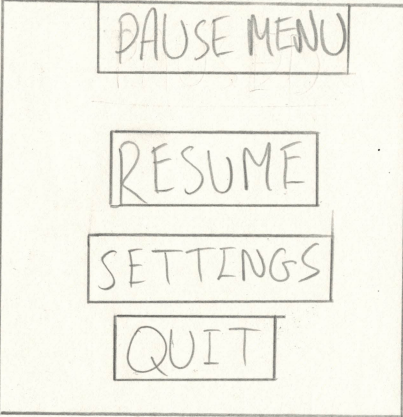 PAUSE MENU
RESUME
SETTINGS
QUIT